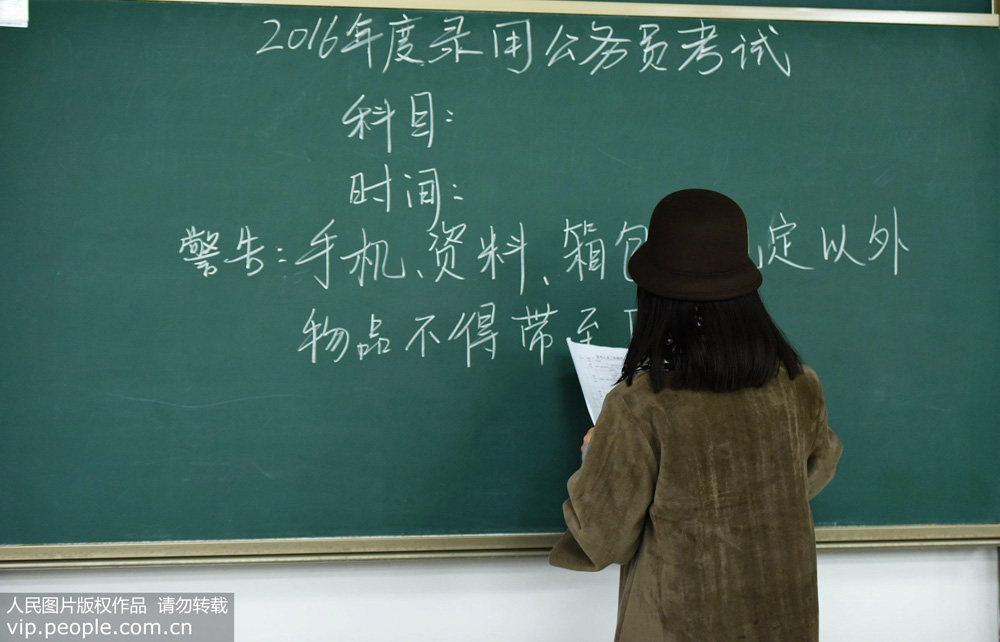 2016年度录用公务员考试
科目:
时间:
警告:手机、资料、箱包 定以外
物品不得带至
人民图片版权作品 请勿转载
vip.people.com.cn